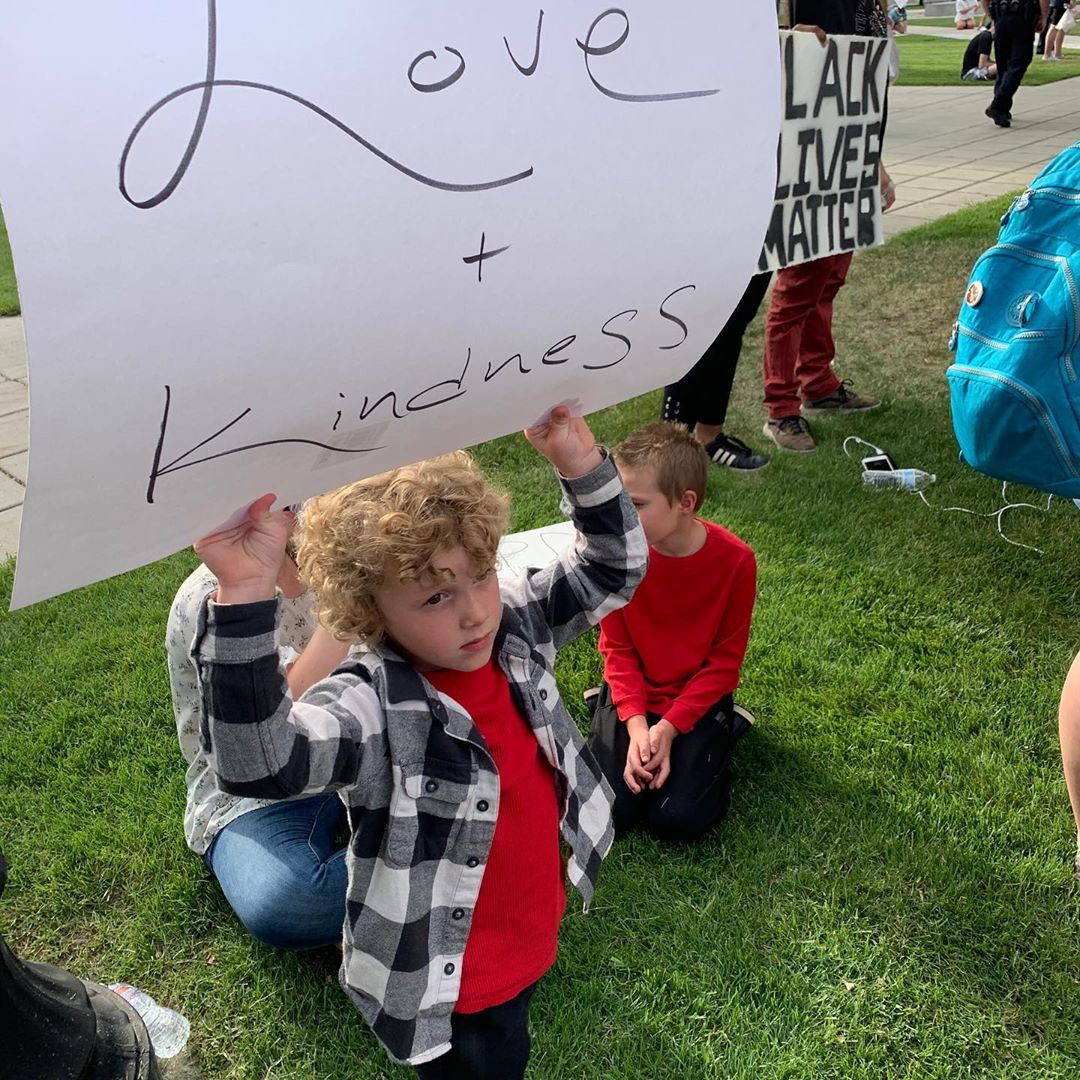 Love
+
Kindness
LACK
LIVES
MATTER